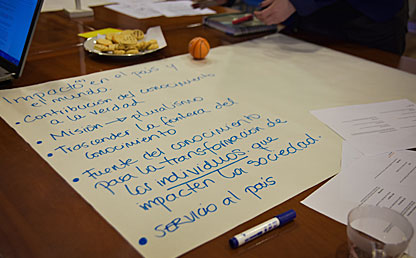 Impacto en el país y
el mundo.
• Contribución del conocimiento
a la verdad
• Misión → pluralismo
• Trascender la frontera del
conocimiento
• Fuente del conocimiento
para la transformación de
los individuos que
impacten la sociedad.
• Servicio al país